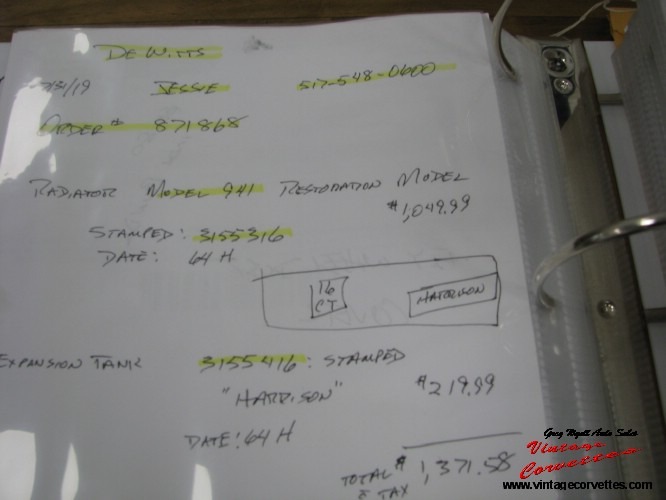 DEWITTS
7/31/19 JESSIE 517-548-0600
ORDER # 871868
RADIATOR MODEL 941 RESTORATION MODEL
$1,049.99
STAMPED: 3155316
DATE: 64 H
16 CT HARRISON
EXPANSION TANK 3155416: STAMPED
"HARRISON" $219.99
DATE: 64 H
TOTAL $ 1,371.58
& TAX
Greg Wyatt Auto Sales
Vintage
Corvettes
www.vintagecorvettes.com